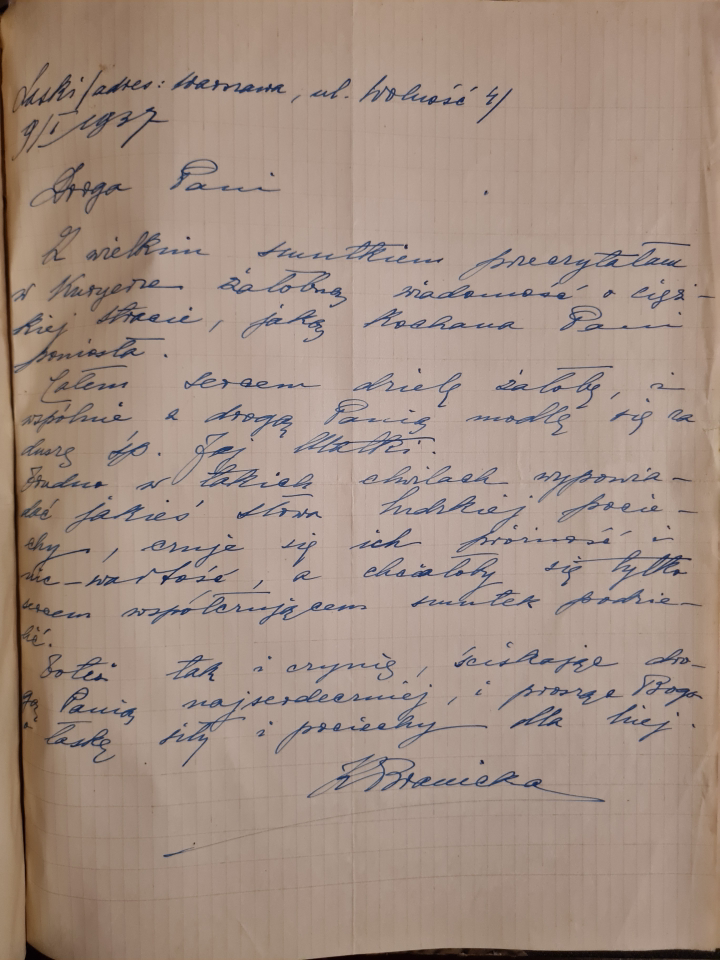 Laski /adres: Warszawa, ul. Wolność 4/
9/I 1937
Droga Pani
Z wielkim smutkiem przeczytałam
w Kuryerze żałobną wiadomość o cięż-
kiej stracie, jaką Kochana Pani
poniosła.
Całem sercem dzielę żałobę, i
wspólnie z drogą Panią modlę się za
duszę śp. Jej Matki.
Trudno w takich chwilach wypowia-
dać jakieś słowa ludzkiej pocie-
chy, czuje się ich próżność i
nic-wartość, a chciałoby się tylko
sercem współczującem smutek podzie-
lić.
Toteż tak i czynię, ściskając dro-
gą Panią najserdeczniej, i prosząc Boga
o łaskę siły i pociechy dla Niej.
K Branicka